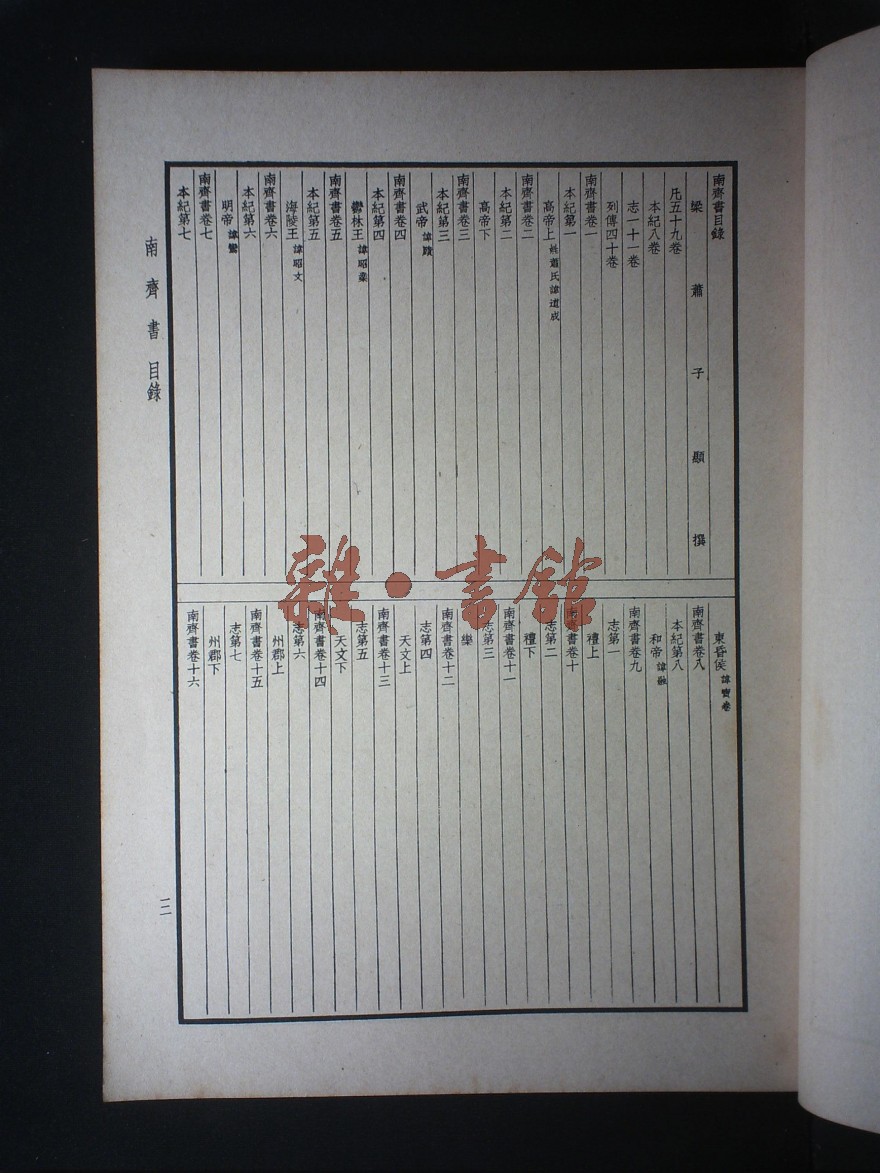 南齊書目錄
梁蕭子顯撰
凡五十九卷
本紀八卷
志一十一卷
列傳四十卷
南齊書卷一
本紀第一
高帝上姓蕭氏諱道成
南齊書卷二
本紀第二
高帝下
南齊書卷三
本紀第三
武帝諱賾
南齊書卷四
本紀第四
鬱林王諱昭業
南齊書卷五
本紀第五
海陵王諱昭文
南齊書卷六
本紀第六
明帝諱鸞
南齊書卷七
本紀第七
東昏侯諱寶卷
南齊書卷八
本紀第八
和帝諱融
南齊書卷九
志第一
禮上
南齊書卷十
志第二
禮下
南齊書卷十一
志第三
樂
南齊書卷十二
志第四
天文上
南齊書卷十三
志第五
天文下
南齊書卷十四
志第六
州郡上
南齊書卷十五
志第七
州郡下
南齊書卷十六
南齊書目錄
三
雜·書館